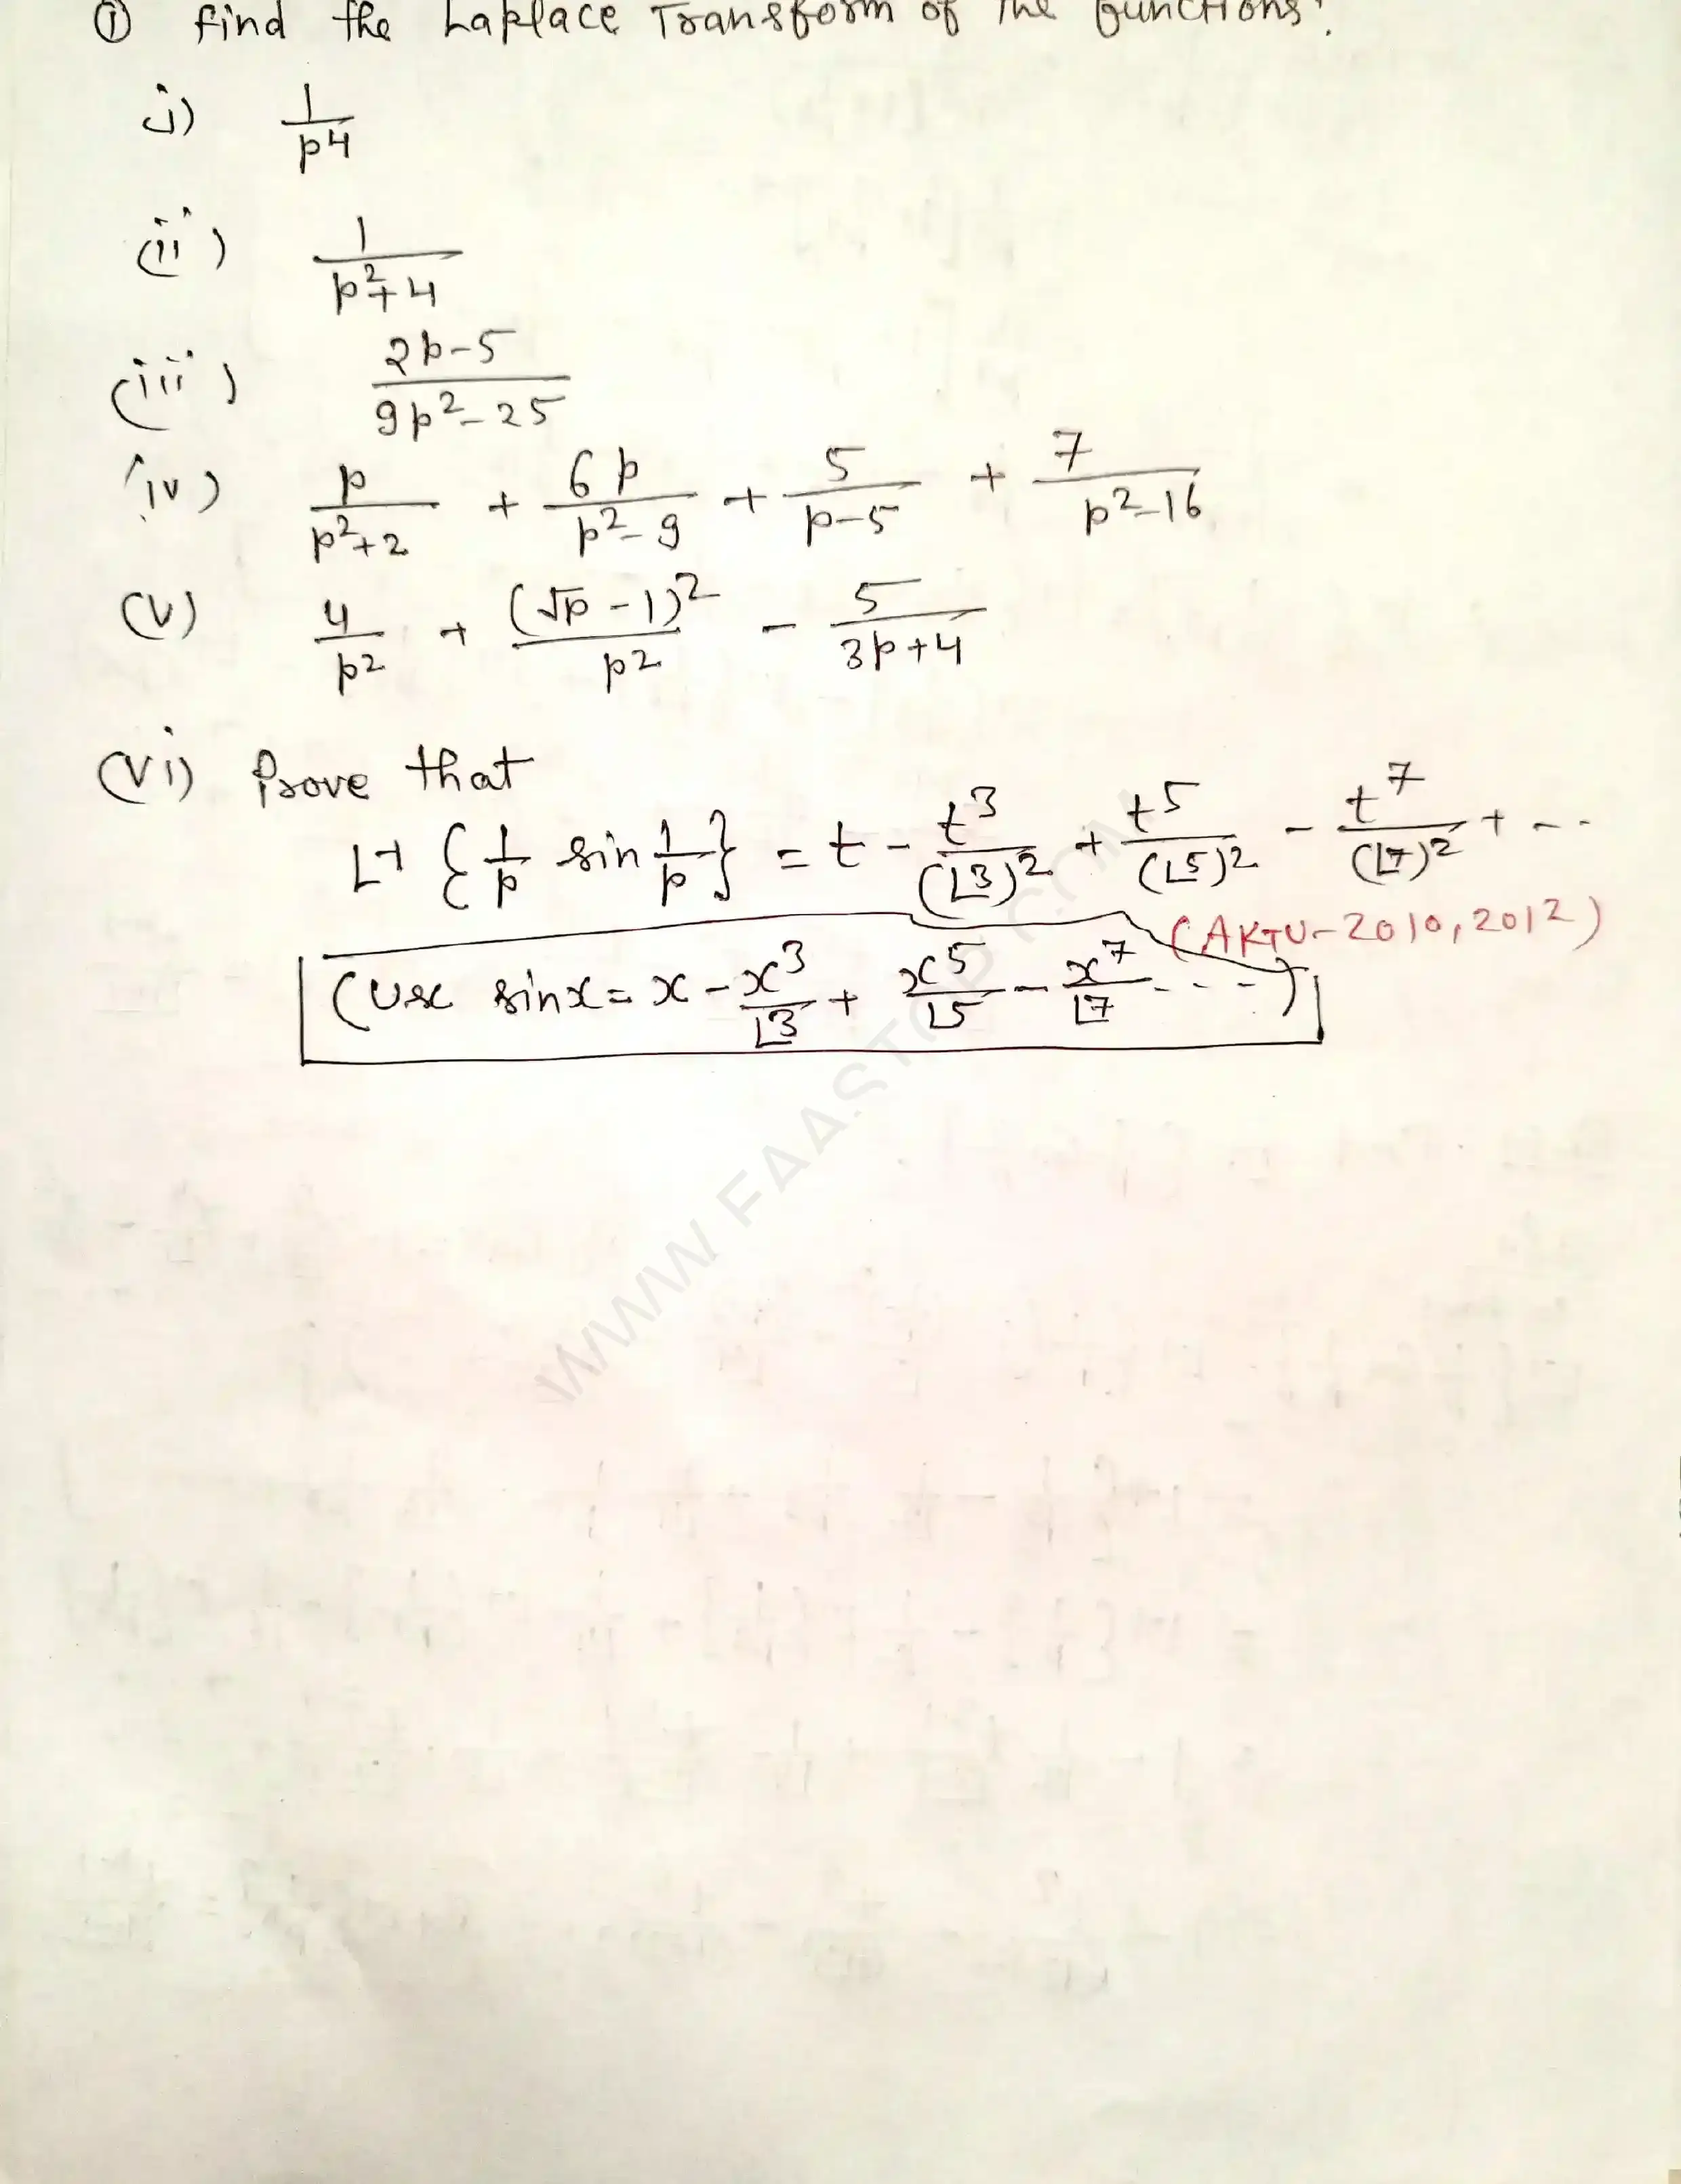 ① Find the Laplace Transform of the functions:
i) 1/p4
(ii) 1/p²+4
(iii) 2p-5/9p²-25
(iv) p/p²+2 + 6p/p²-9 + 5/p-5 + 7/p²-16
(v) 4/p2 + (√p - 1)²/p2 - 5/3p+4
(vi) Prove that
L⁻¹ {1/p sin 1/p} = t - t³/(⌊3)² + t⁵/(⌊5)² - t⁷/(⌊7)² + ---
(AKTU-2010, 2012)
(Use sinx = x - x³/⌊3 + x⁵/⌊5 - x⁷/⌊7 ----)
WWW.FAASTOP.COM